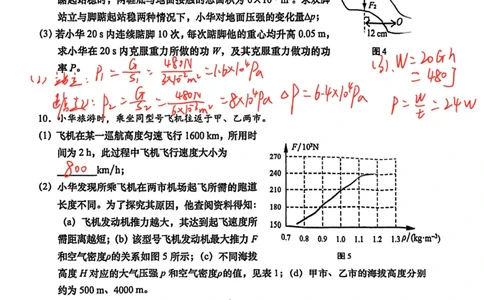 站立与脚踮起站稳两种情况下，小华对地面压强的变化量Δp；
(3) 若小华在 20 s 内连续踮脚 10 次，每次踮脚他的重心均升高 0.05 m，
求小华在 20 s 内克服重力所做的功 W，及其克服重力做功的功
率 P。
F₂
O
12 cm
图 4
(2) 站立: P₁ = G/S₁ = 480N/3×10⁻²m² = 1.6×10⁴Pa
P₂ = G/S₂ = 480N/6×10⁻³m² = 8×10⁴Pa ΔP = 6.4×10⁴Pa
(3). W = 20Gh
= 480J
P = W/t = 24W
10. 小华旅游时，乘坐同型号飞机往返于甲、乙两市。
(1) 飞机在某一巡航高度匀速飞行 1600 km，所用时
间为 2 h，此过程中飞机飞行速度大小为
800 km/h；
(2) 小华发现所乘飞机在两市机场起飞所需的跑道
长度不同。为了探究其原因，他查阅资料得知：
(a) 飞机发动机推力越大，其达到起飞速度所
需距离越短；(b) 该型号飞机发动机最大推力 F
和空气密度ρ的关系如图 5 所示；(c) 不同海拔
高度 H 对应的大气压强 p 和空气密度ρ的值，见表 1；(d) 甲市、乙市的海拔高度分别
约为 500 m、4000 m。
F/10³N
270
240
210
180
150
0.7 0.8 0.9 1.0 1.1 1.2 1.3 ρ/(kg·m⁻³)
图 5